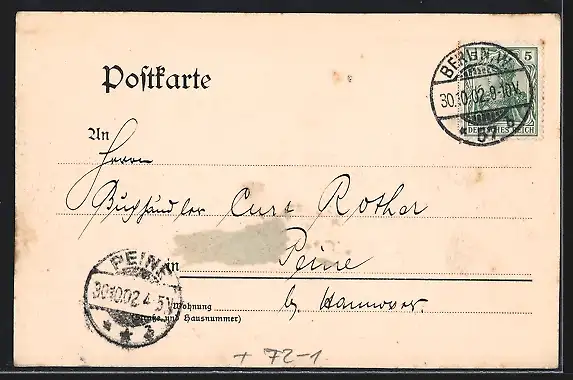 Postkarte
BERLIN, W.
30.10.02.9-10V.
* 57 b
5
DEUTSCHES REICH
An
Herrn
Buchhändler Curt Rother
in Peine
Wohnung
(Straße und Hausnummer)
b/ Hannover.
PEINE
30.10.02.4-5N
* * *
+ 72-1